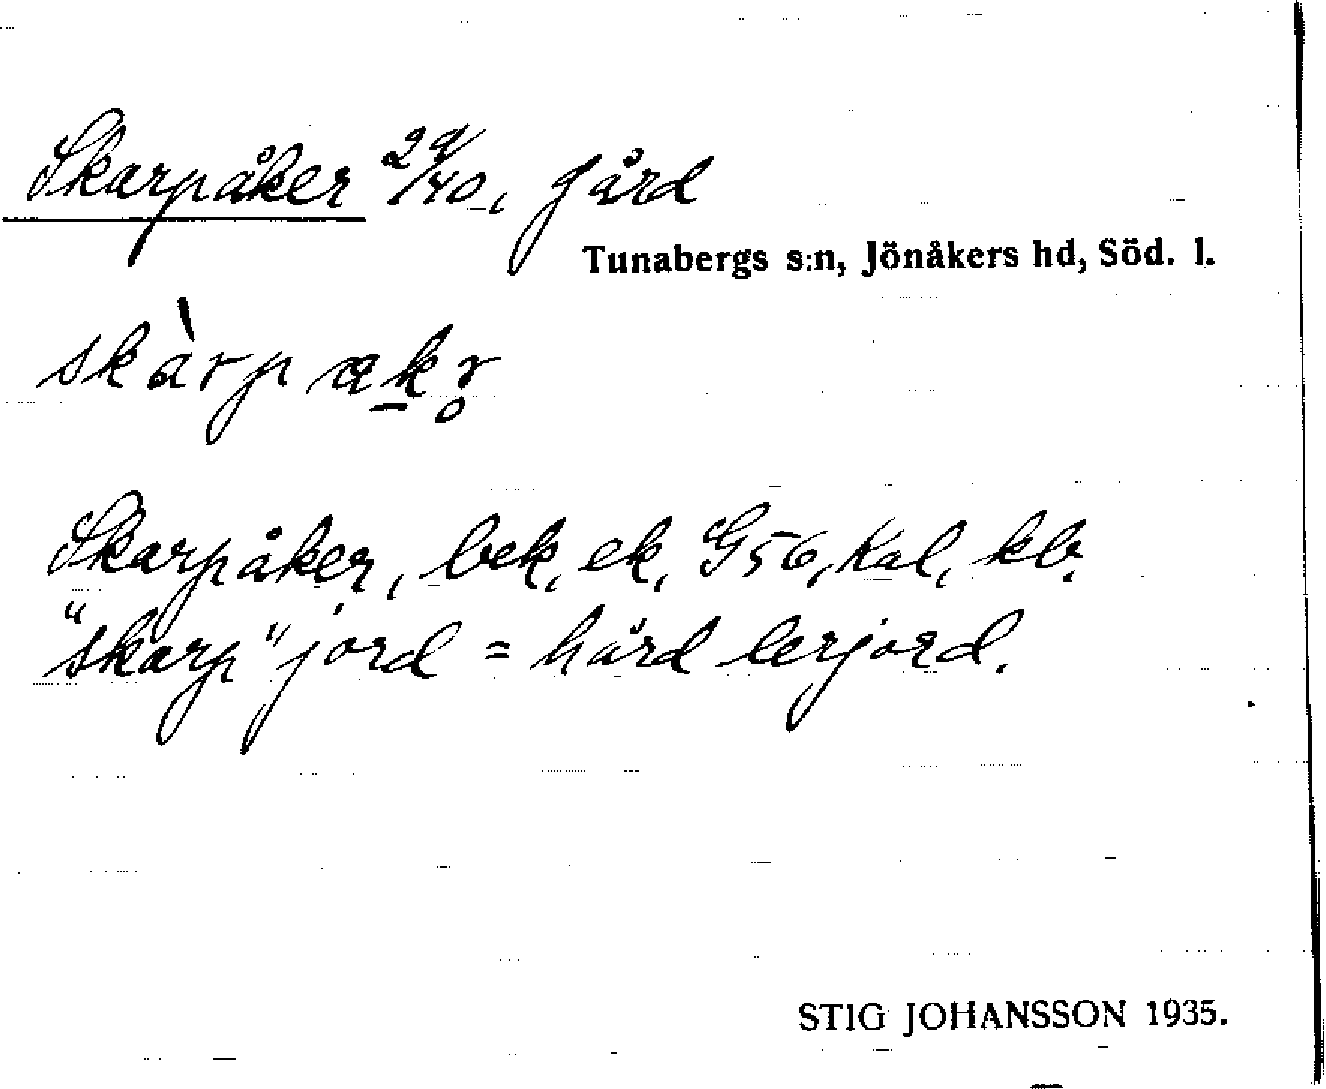 Skarpåker 29/40, gård
Tunabergs s:n, Jönåkers hd, Söd. l.
skàrpakr̥
Skarpåker, bek, ek, G56, Kal, kb.
"skarp" jord = hård lerjord.
STIG JOHANSSON 1935.